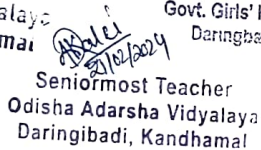 Govt. Girls'
21/02/2024
Seniormost Teacher
Odisha Adarsha Vidyalaya
Daringibadi, Kandhamal